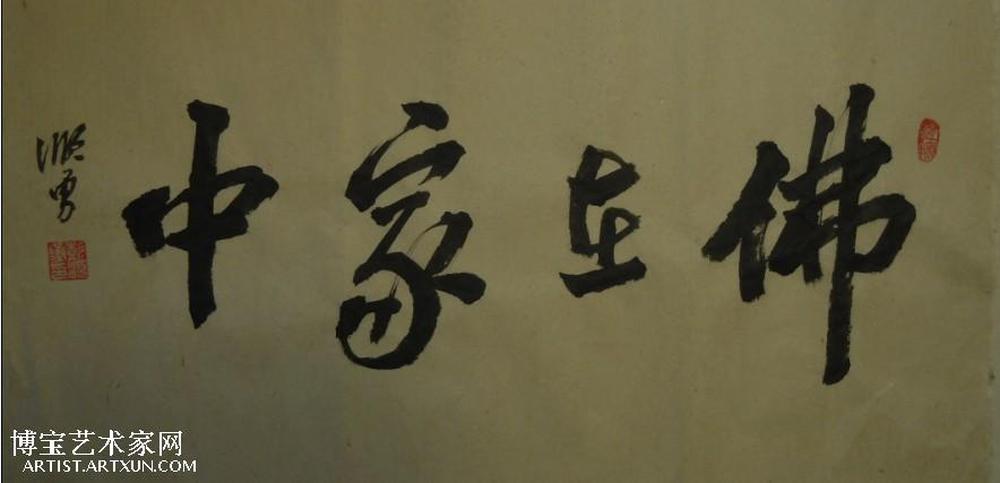 佛在家中
博宝艺术家网
ARTIST.ARTXUN.COM